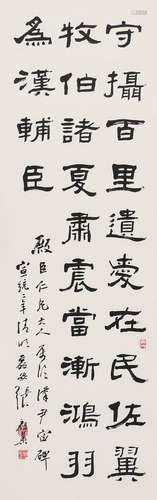 守攝百里遺愛在民佐翼
牧伯諸夏肅震當漸鴻羽
為漢輔臣
殿臣仁兄大人屬臨漢尹宙碑
宣統二年清明磊盦張祖翼